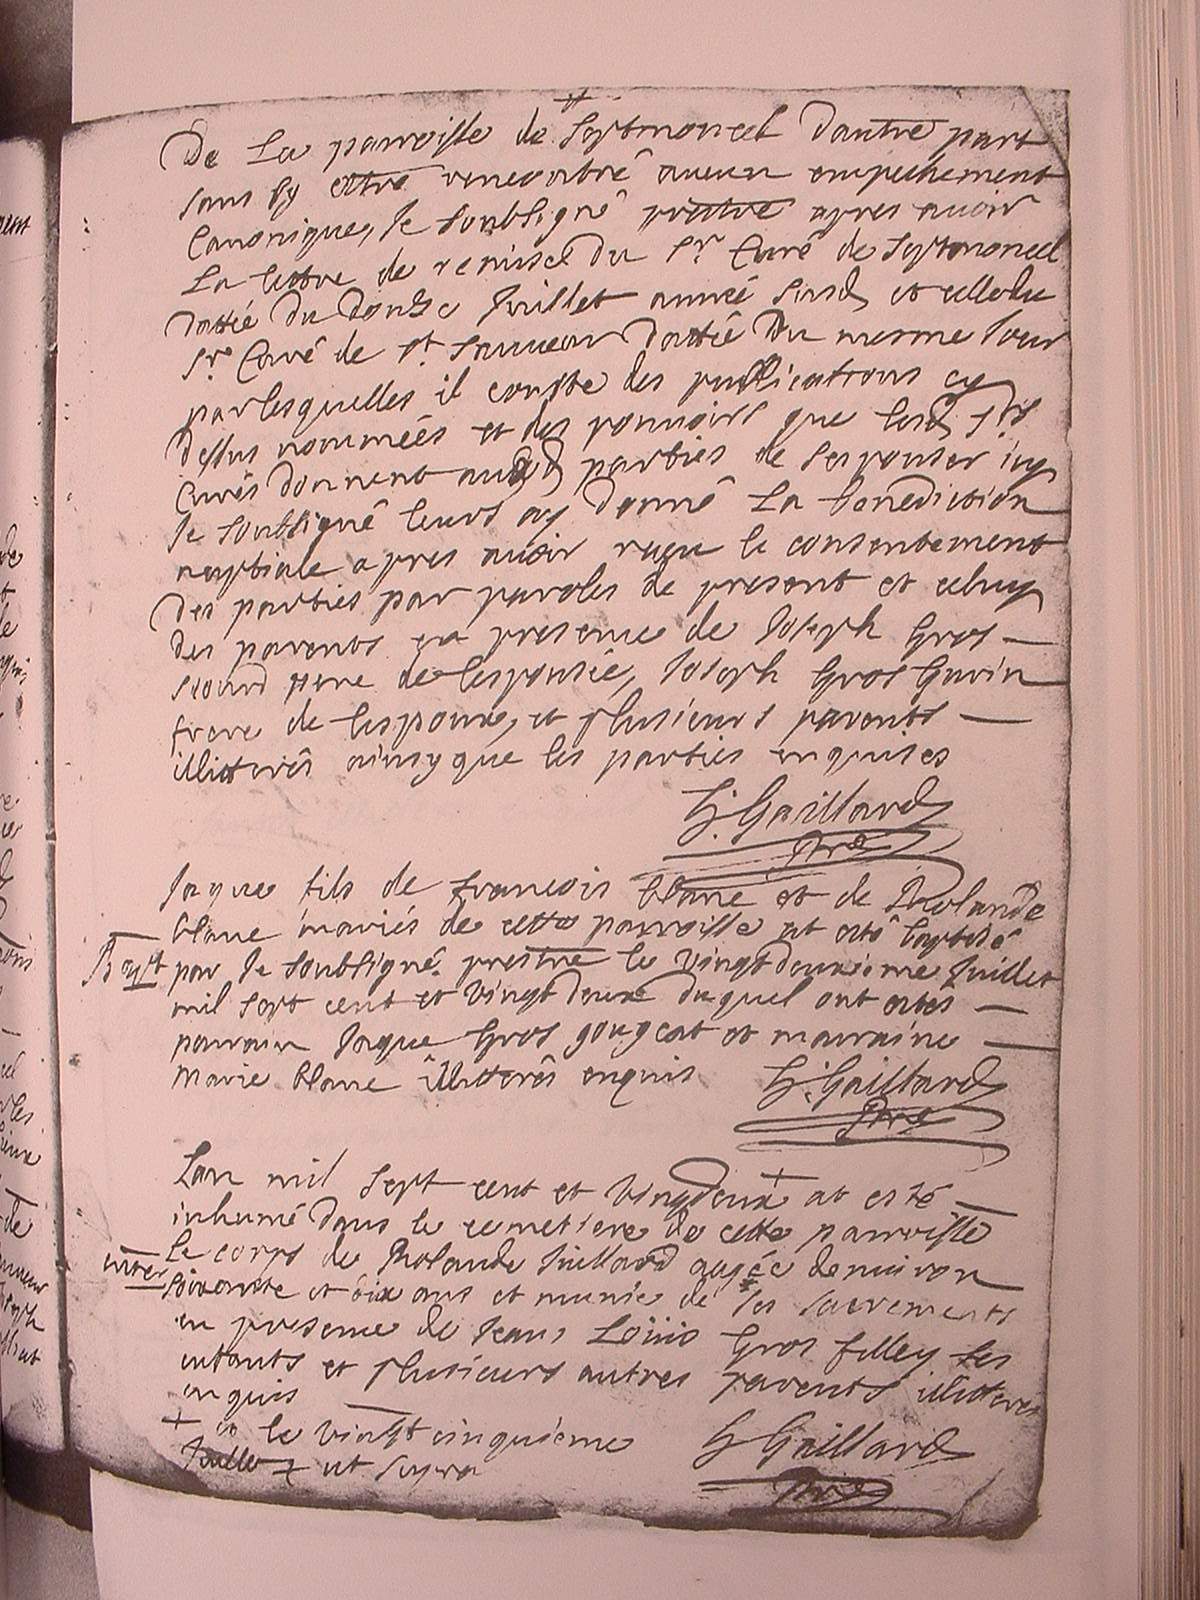 De La parroisse de Septmoncel Dautre part
sans sy estre rencontré aucun empechement
Canonique, Je soubsigné prestre apres avoir
La lettre de remise du Sr Curé de Septmoncel
dattée du Douze Juillet année susd et celle du
Sr Curé de St Sauveur Dattée Du mesme Jour
par lesquelles il conste des publications cy
dessus nommées et des pouvoirs que lesd Srs
Curés donnent auxd parties de sespouser icy
Je soubsigné leurs ay Donné La benediction
nuptiale apres avoir reçu le consentement
Des parties par paroles de present et celuy
des parents en presence de Joseph Gros
pere de lespousée, Joseph Gros Gurin
frere de lespoux, et plusieurs parents
illitterés ainsy que les parties enquises
G. Gaillard
Ptre
Jaque fils de francois blanc et de Rolande
blanc mariés de cette parroisse at esté baptisé
Bapt par Je soubsigné prestre le vingt deuxieme Juillet
mil sept cent et vingt deux duquel ont estes
parrain Jaque Gros gougeat et marraine
Marie blanc illitterés enquis
G. Gaillard
Ptre
Lan mil sept cent et vingdeux + at esté
inhumé Dans le cemetiere de cette parroisse
Le corps de Rolande Juillard aagée denviron
enter soixante et dix ans et munie de ses sacrements
en presence de Jean, Loüis Gros filley ses
enfants et plusieurs autres parents illitteres
enquis
+ le vingt cinquieme
Juillet ut supra
G Gaillard
Ptre